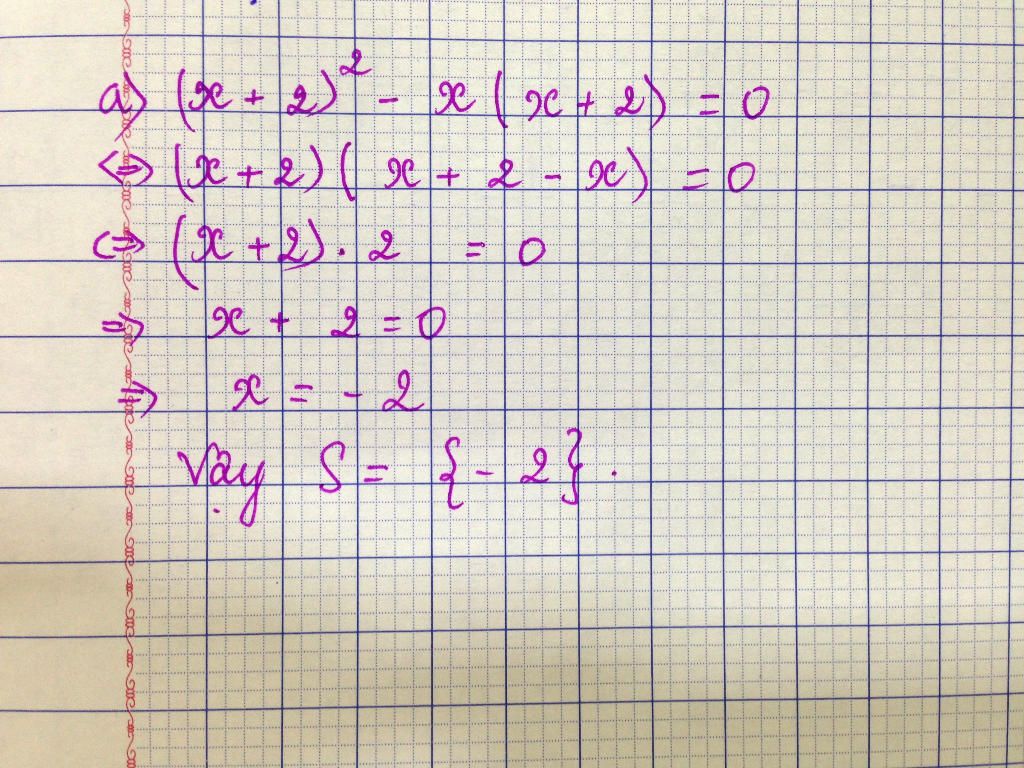 a) (x + 2)² - x (x + 2) = 0
<=> (x + 2) ( x + 2 - x) = 0
<=> (x + 2) . 2 = 0
=> x + 2 = 0
=> x = - 2
Vậy S = {- 2} .